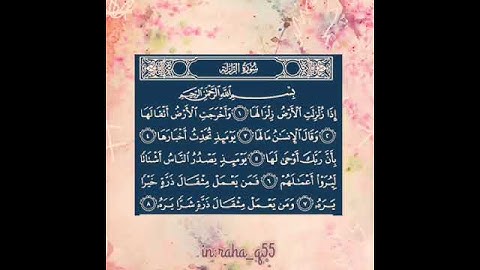 سُورَةُ الزَّلْزَلَةِ
بِسْمِ اللَّهِ الرَّحْمَٰنِ الرَّحِيمِ
إِذَا زُلْزِلَتِ الْأَرْضُ زِلْزَالَهَا ١ وَأَخْرَجَتِ الْأَرْضُ أَثْقَالَهَا
٢ وَقَالَ الْإِنسَٰنُ مَا لَهَا ٣ يَوْمَئِذٍ تُحَدِّثُ أَخْبَارَهَا ٤
بِأَنَّ رَبَّكَ أَوْحَىٰ لَهَا ٥ يَوْمَئِذٍ يَصْدُرُ النَّاسُ أَشْتَاتًا
لِّيُرَوْا أَعْمَٰلَهُمْ ٦ فَمَن يَعْمَلْ مِثْقَالَ ذَرَّةٍ خَيْرًا
يَرَهُۥ ٧ وَمَن يَعْمَلْ مِثْقَالَ ذَرَّةٍ شَرًّا يَرَهُۥ ٨
in:raha_q55